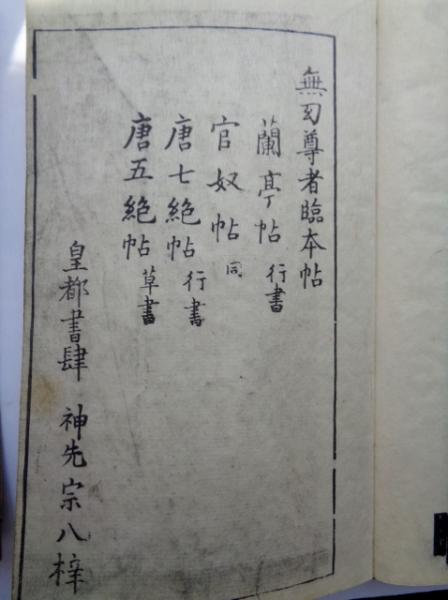 無尊者臨本帖
蘭亭帖 行書
官奴帖 同
唐七絶帖 行書
唐五絶帖 草書
皇都書肆 神先宗八梓